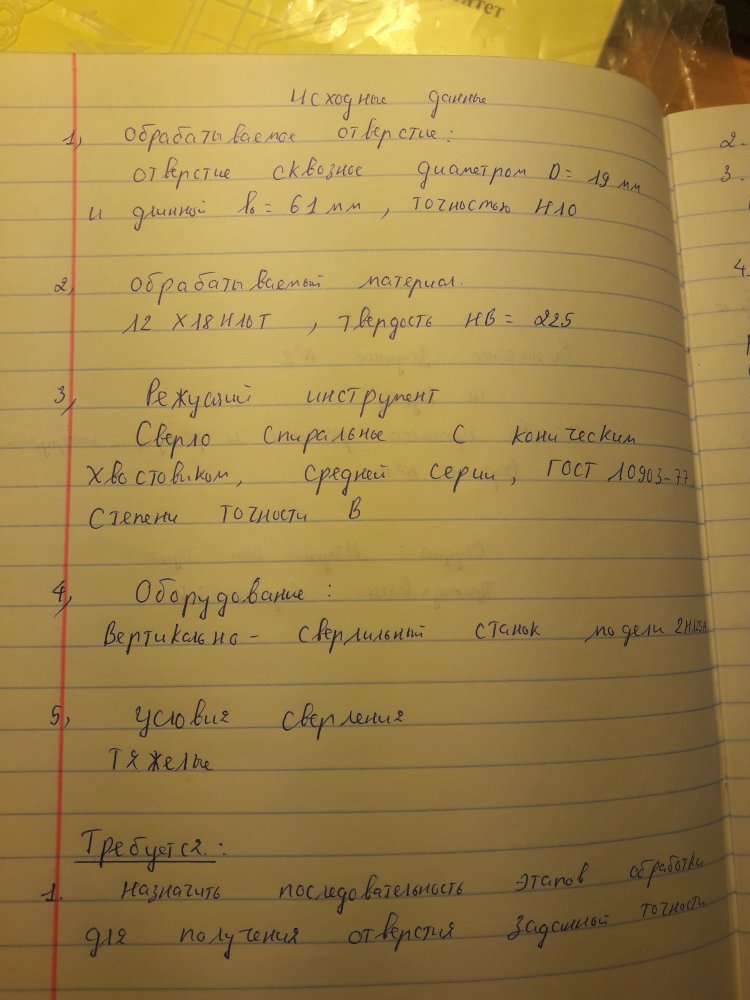 ситет
Исходные данные
1, Обрабатываемое отверстие:
отверстие сквозное диаметром D= 19 мм
и длинной l₀ = 61 мм, точностью H10
2, Обрабатываемый материал.
12 Х18Н10Т, твердость HB = 225
3, Режущий инструмент
Сверло спиральные с коническим
хвостовиком, средней серии, ГОСТ 10903-77,
Степени точности В
4, Оборудование:
Вертикально - сверлильный станок модели
5, условия сверления
Тяжелые
Требуется:
1. назначить последовательность этапов обработки
для получения отверстия заданной точности
2.
3.
4.